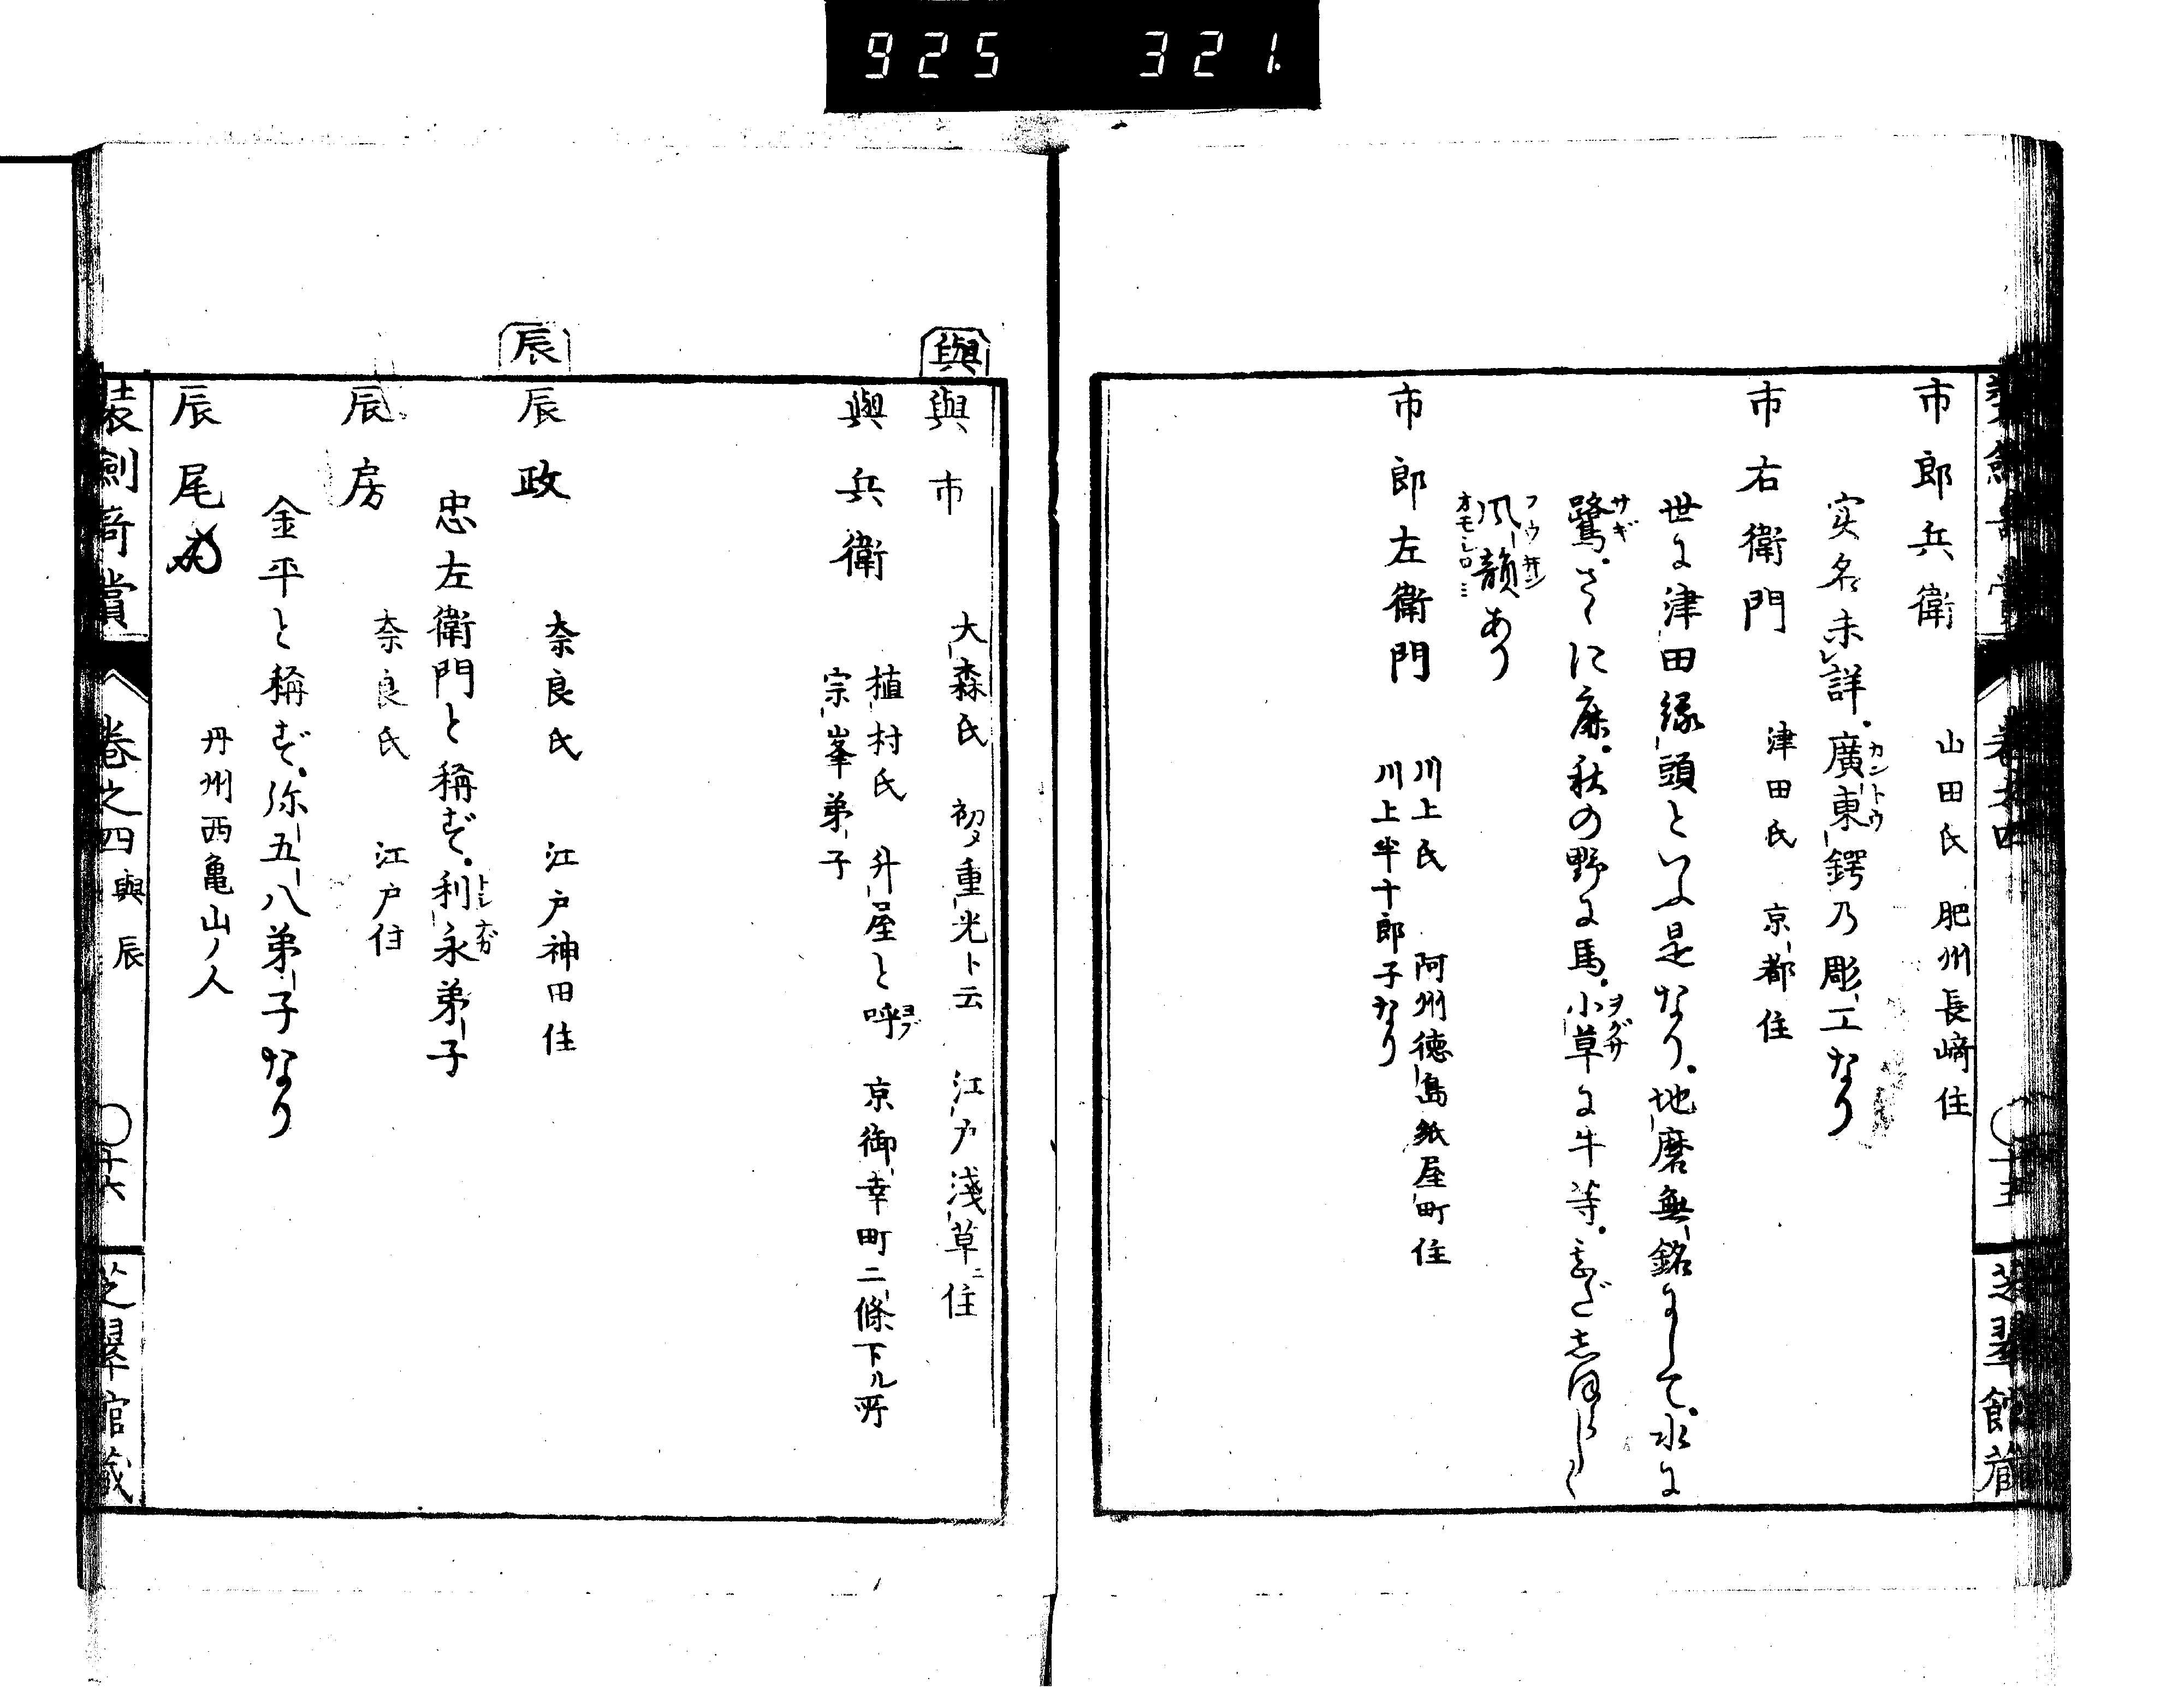 925 321.
市郎兵衛 山田氏 肥州長﨑住
实名未レ詳。廣東鍔乃彫工なり
カントウ
市右衛門 津田氏 京都住
世に津田縁頭といふ是なり。地磨無銘にして。水に
鷺。さゝに麻。秋の野に馬。小草に牛等。
サギ
ヲグサ
風韻あり
フウ
オモシロミ
市郎左衛門 川上氏 阿州徳島紙屋町住
川上半十郎子なり
與
與市 大森氏 初メ重光ト云 江戸淺草ニ住
與兵衛 植村氏 升屋と呼 京御幸町二條下ル所
ヨブ
宗峯弟子
辰
辰政 奈良氏 江戸神田住
忠左衛門と稱ず。利永弟子
トシナガ
辰房 奈良氏 江戸住
金平と稱ず。弥五八弟子なり
辰尾 丹州西亀山ノ人
装劍奇賞 巻之四 與 辰 〇十六 芝翠館蔵